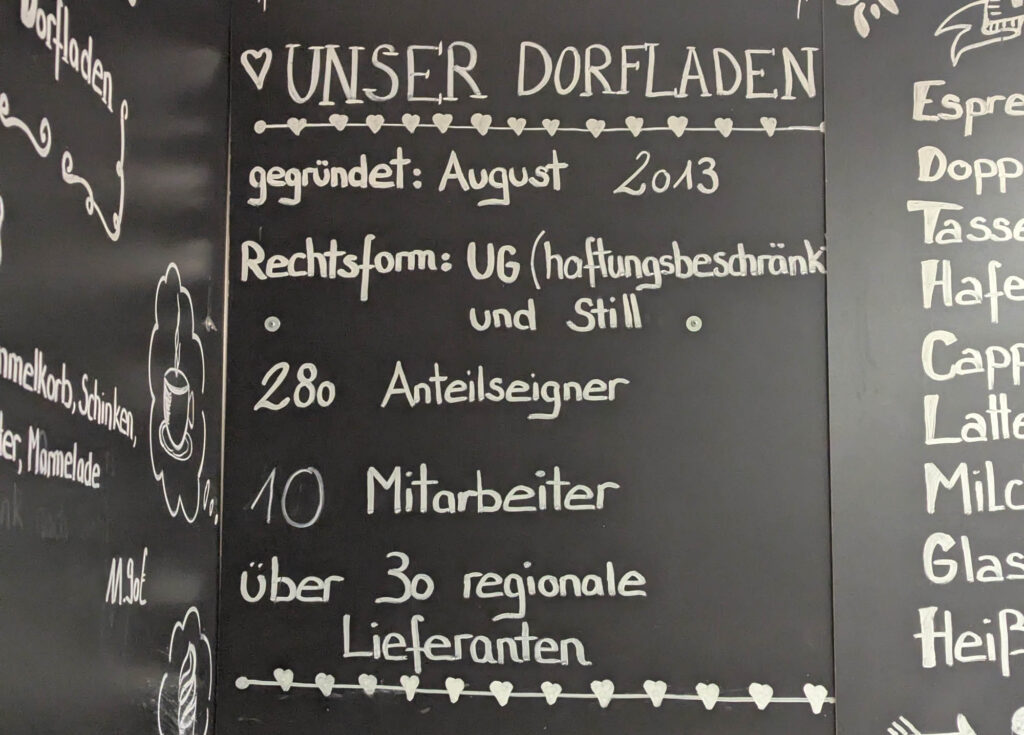 Dorfladen
Schinken,
Marmelade
11.90€
♡ UNSER DORFLADEN
gegründet: August 2013
Rechtsform: UG (haftungsbeschränk
und Still
280 Anteilseigner
10 Mitarbeiter
über 30 regionale
Lieferanten
Espre
Dopp
Tasse
Hafe
Capp
Latte
Milc
Glas
Heiß